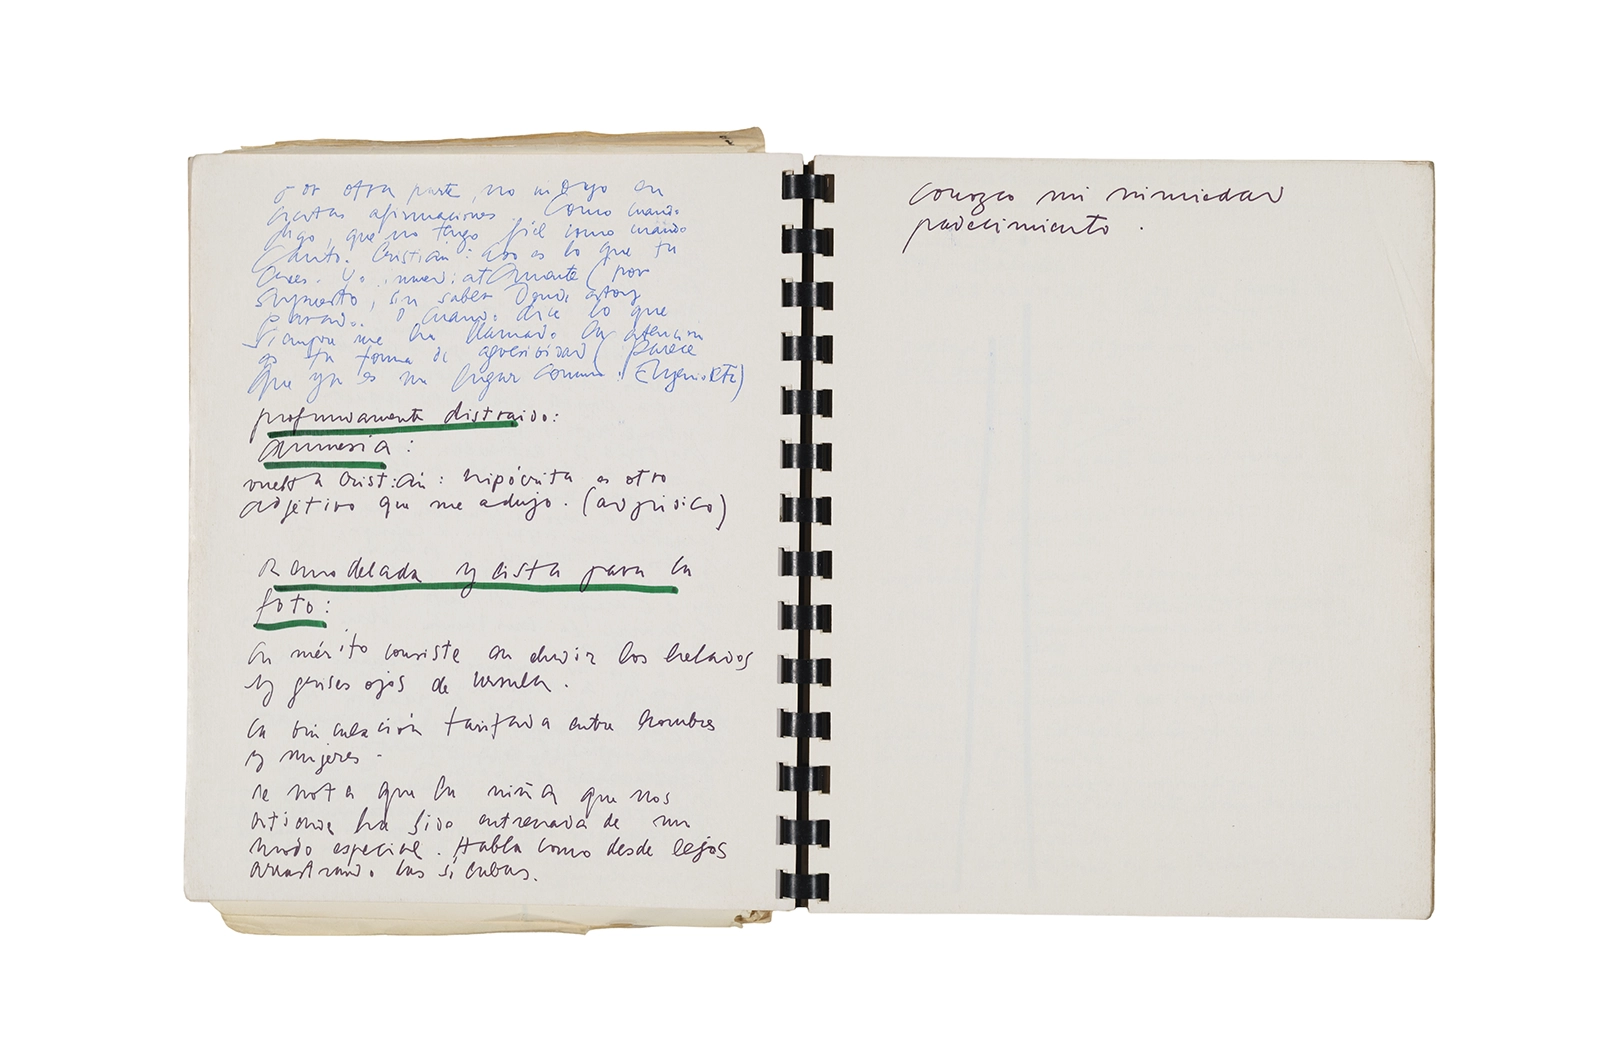 por otra parte, no influyo en
ciertas afirmaciones. Como cuando
digo, que no tengo fiel como cuando
canto. Cristián: eso es lo que tu
crees. Yo inmediatamente (por
supuesto, sin saber donde estoy
parado. O cuando dice lo que
siempre me ha llamado la atención
es tu forma de agresividad (parece
que ya es un lugar común. Eugenio
profundamente distraido:
amnesia:
vuelta Cristián: hipócrita es otro
adjetivo que me adujo. (
Remodelada y lista para la
foto:
su mérito consiste en eludir los helados
y grises ojos de Ursula.
La vinculación tarifada entre hombres
y mujeres.
se nota que la niña que nos
atiende ha sido entrenada de un
modo especial. Habla como desde lejos
arrastrando las sílabas.
conozco mi
padecimiento.